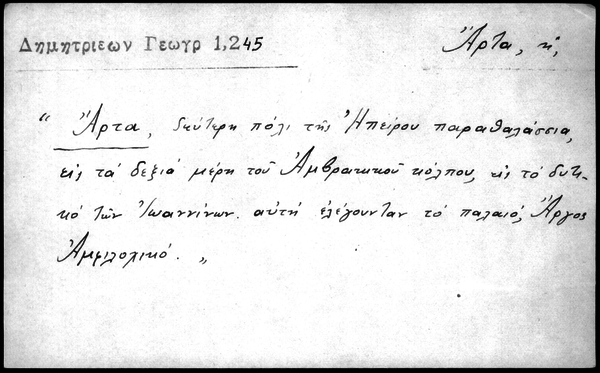 Δημητριεων Γεωγρ 1,245
Ἄρτα, ἡ,
“ Ἄρτα, δεύτερη πόλι τῆς Ἠπείρου παραθαλάσσια,
εἰς τά δεξιά μέρη τοῦ Ἀμβρακικοῦ κόλπου, εἰς τό δυτι-
κό τῶν Ἰωαννίνων. αὐτή ἐλέγουνταν τό παλαιό, Ἄργος
Ἀμφιλοχικό. „